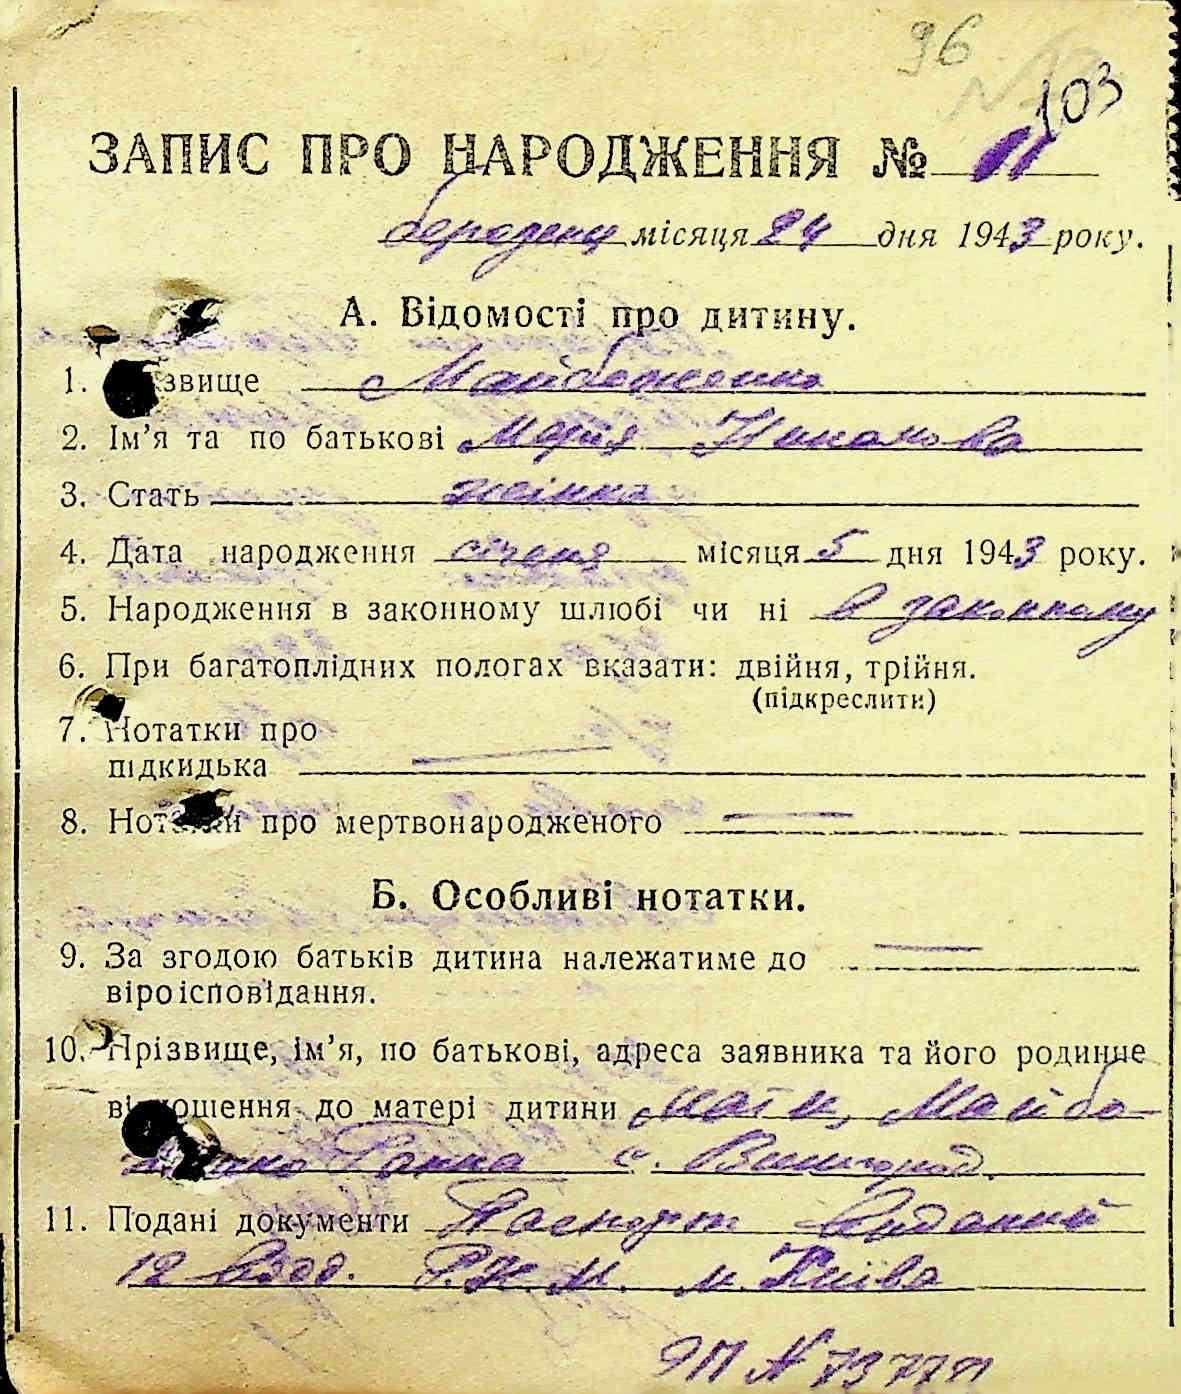 96
103
ЗАПИС ПРО НАРОДЖЕННЯ №
березня місяця 24 дня 1943 року.
А. Відомості про дитину.
1. звище Майбоженко
2. Ім’я та по батькові Марія
3. Стать жінка
4. Дата народження січеня місяця 5 дня 1943 року.
5. Народження в законному шлюбі чи ні в законному
6. При багатоплідних пологах вказати: двійня, трійня.
(підкреслити)
7. Нотатки про
підкидька
8. Нотатки про мертвонародженого
Б. Особливі нотатки.
9. За згодою батьків дитина належатиме до
віроісповідання.
10. Прізвище, ім’я, по батькові, адреса заявника та його родинне
відношення до матері дитини мати, Майбо
женко Ганна с. Вишгород.
11. Подані документи Паспорт виданий
12 відд. Р.К.М. м. Київа
ЯП №